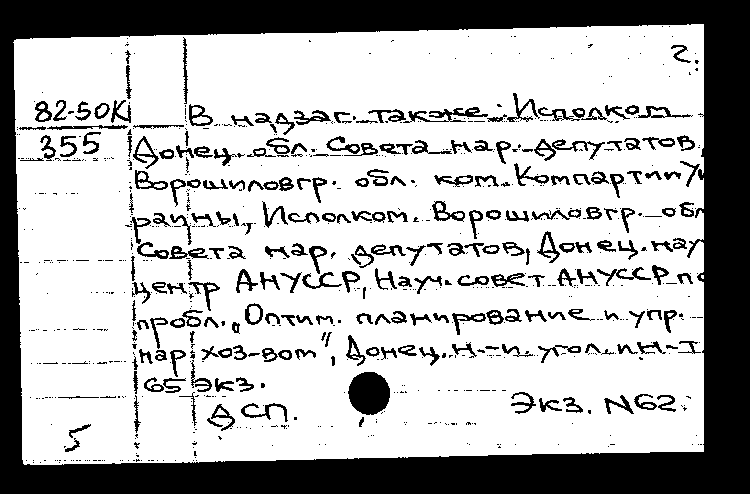 2.
82-50К В надзаг. также: Исполком
355 Донец. обл. Совета нар. депутатов,
Ворошиловгр. обл. ком. Компартии Ук
раины, Исполком. Ворошиловгр. обл
Совета нар. депутатов, Донец. науч
центр АНУССР, Науч. совет АНУССР по
пробл. „Оптим. планирование и упр.
нар хоз-вом", Донец. н.-и. угол. ин-т
65 экз.
ДСП. Экз. N62.
5